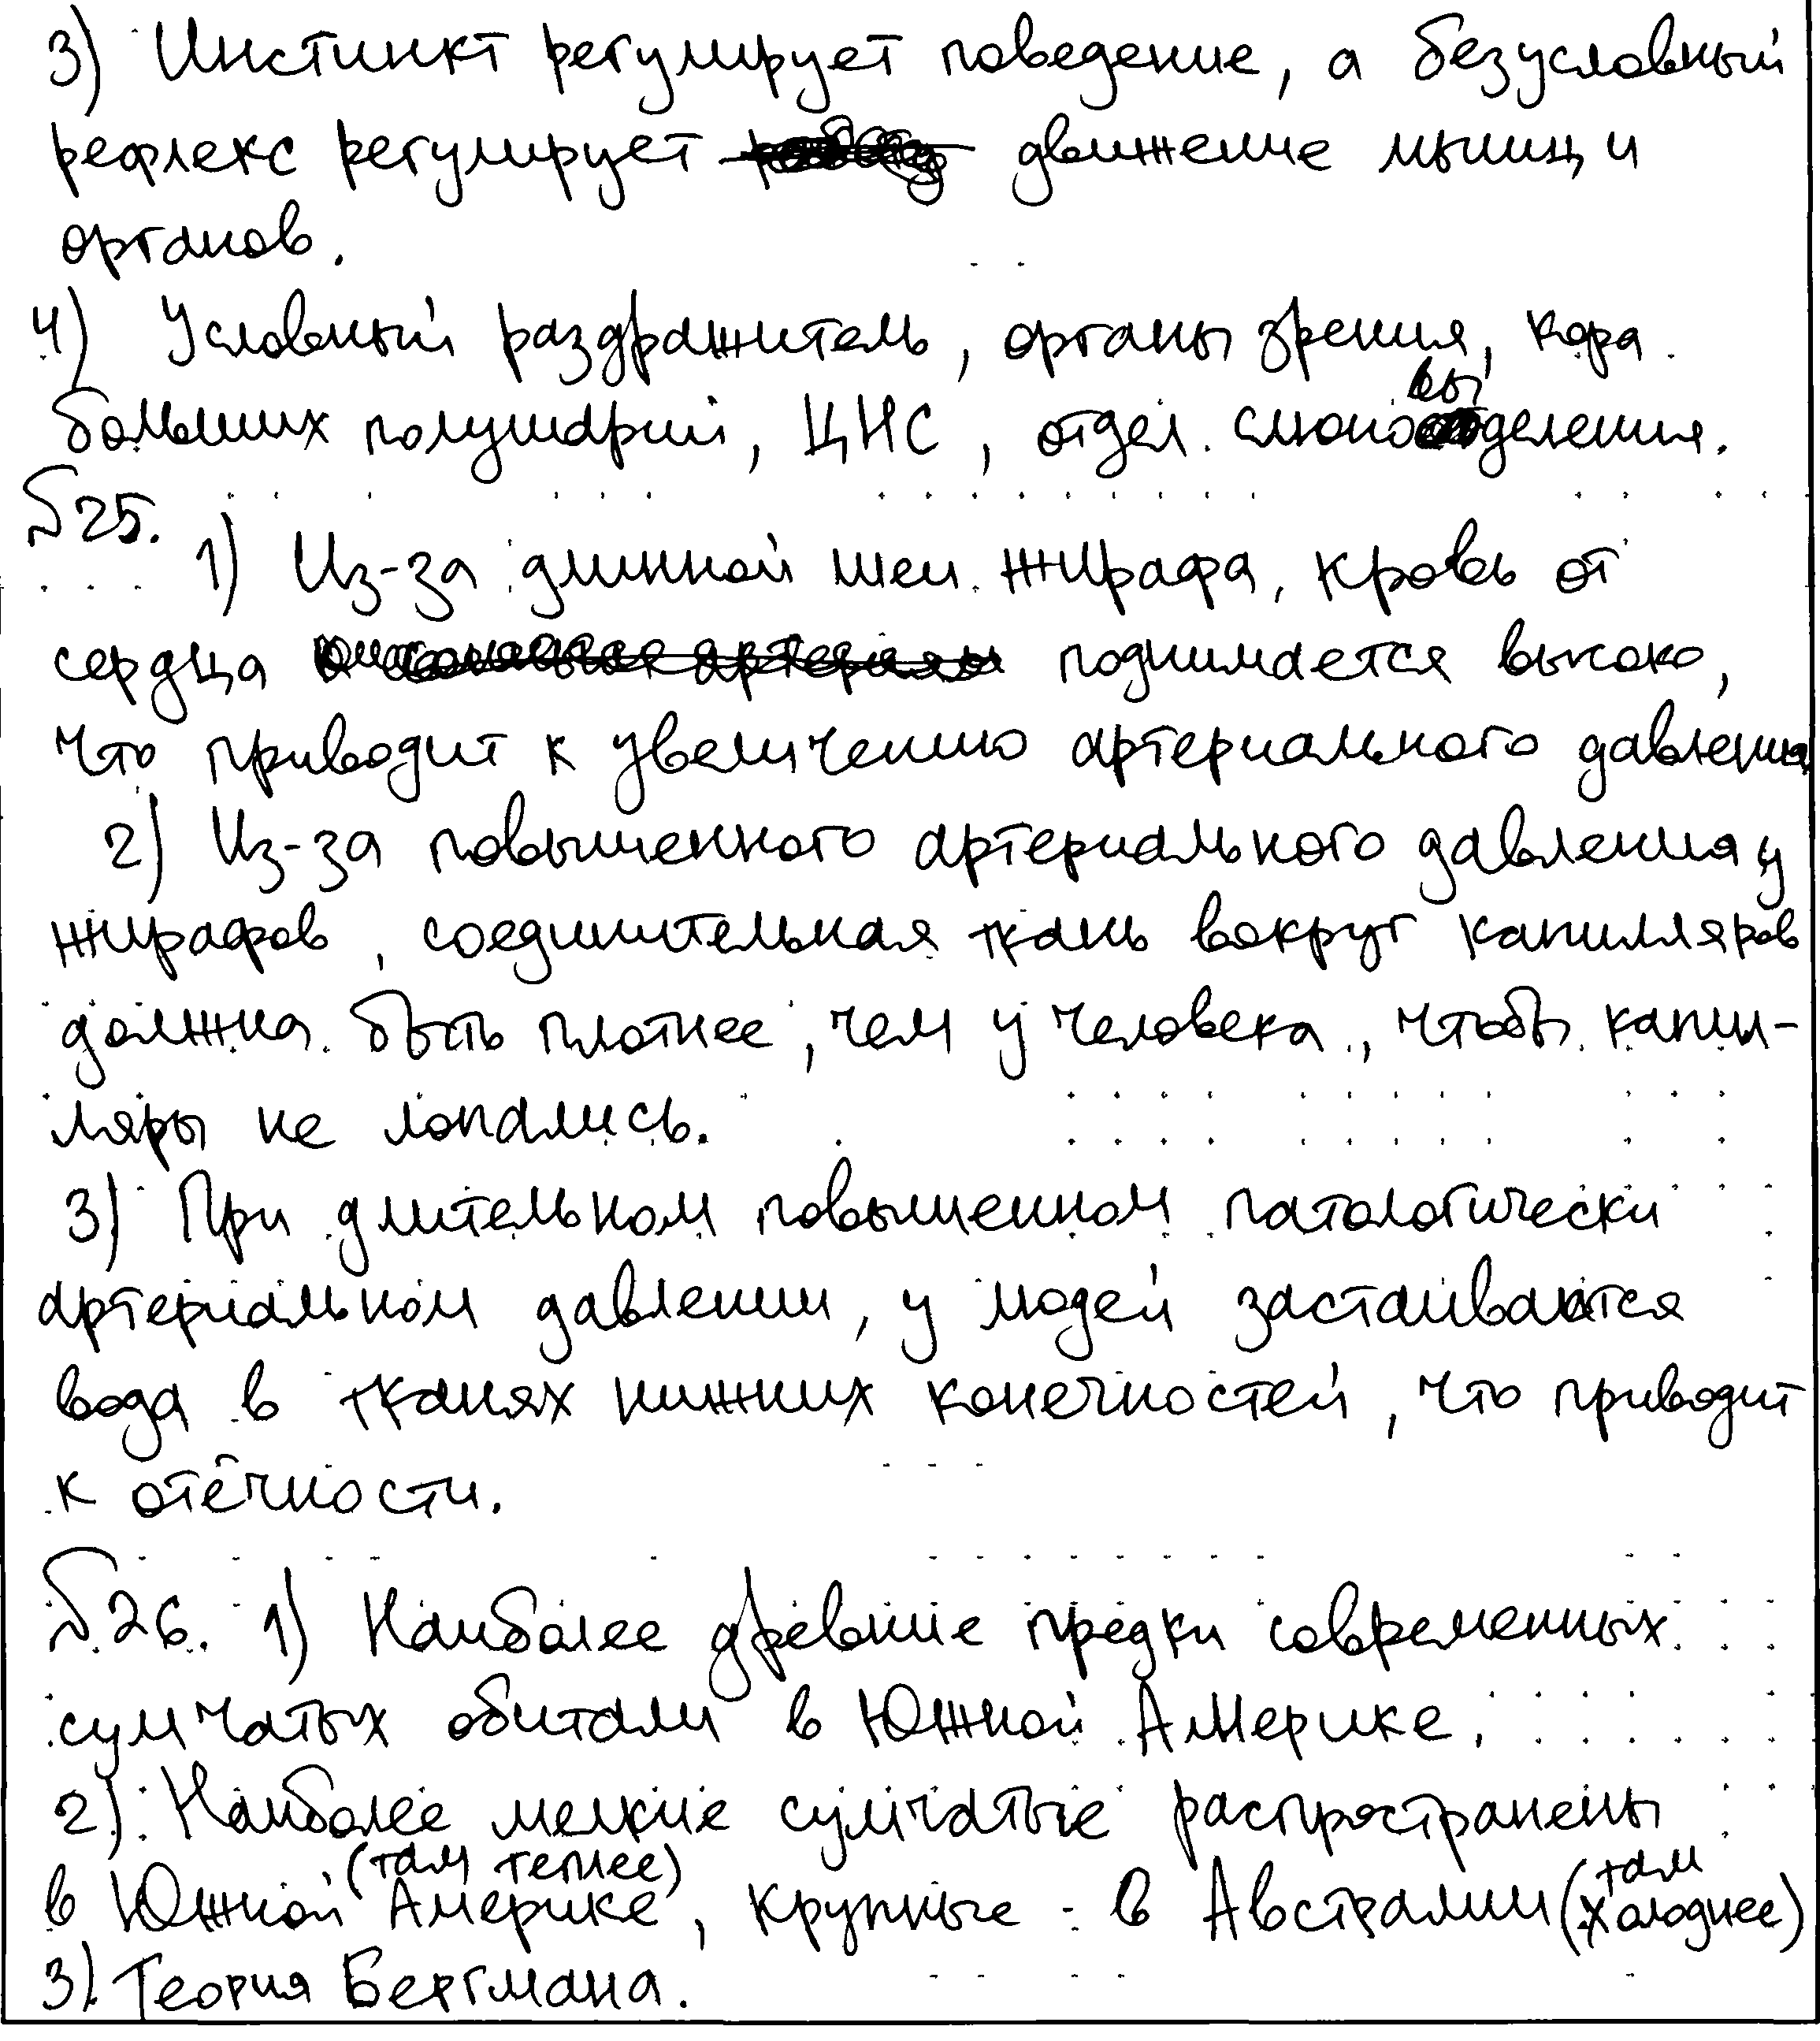 3) Инстинкт регулирует поведение, а безусловный
рефлекс регулирует движение мышц и
органов.
4) Условный раздражитель, органы зрения, кора
больших полушарий, ЦНС, отдел слюновыделения.
№25.
1) Из-за длинной шеи жирафа, кровь от
сердца поднимается высоко,
что приводит к увеличению артериального давления
2) Из-за повышенного артериального давления у
жирафов, соединительная ткань вокруг капилляров
должна быть плотнее, чем у человека, чтобы капил-
ляры не лопались.
3) При длительном повышенном патологически
артериальном давлении, у людей застаиваются
вода в тканях нижних конечностей, что приводит
к отёчности.
№26. 1) Наиболее древние предки современных
сумчатых обитали в Южной Америке.
2) Наиболее мелкие сумчатые распространены
в Южной Америке (там теплее), крупные - в Австралии (там холоднее)
3) Теория Бергмана.